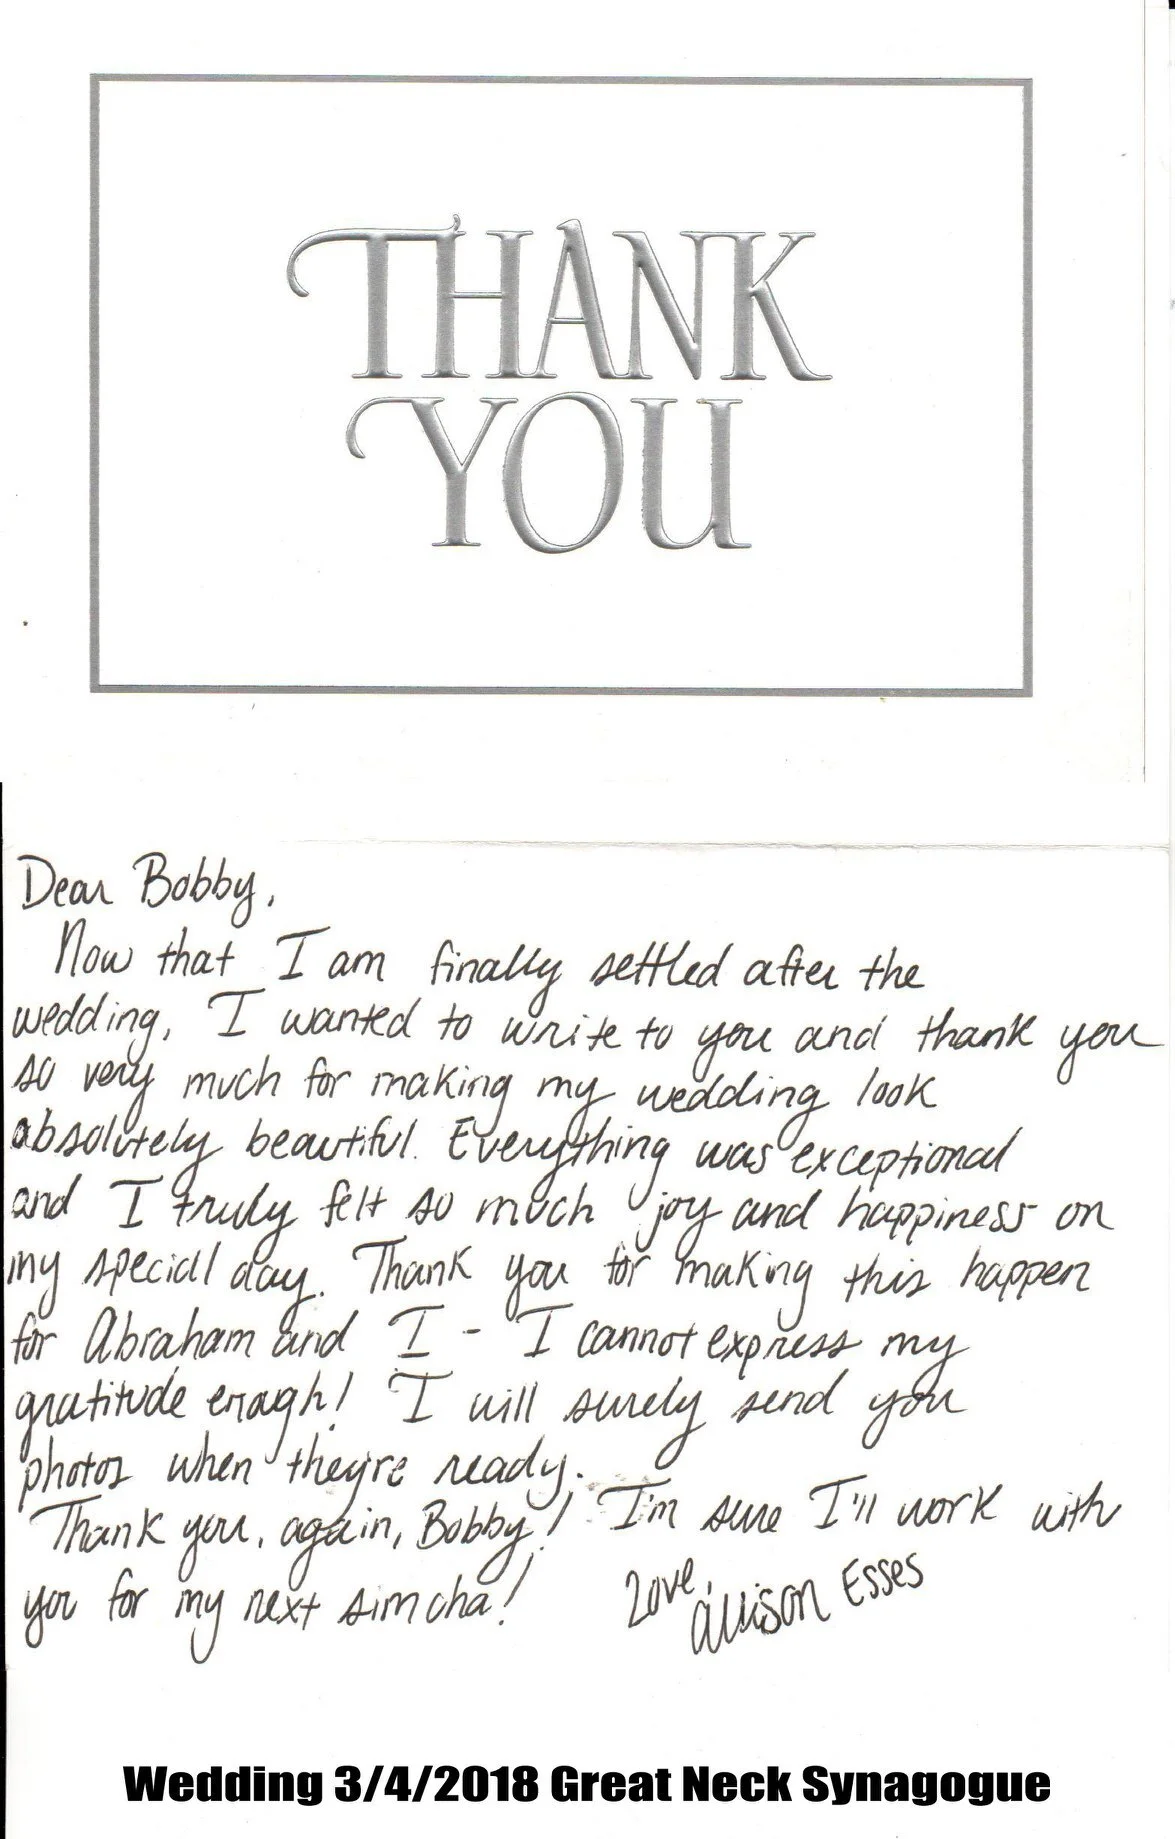 THANK
YOU
Dear Bobby,
Now that I am finally settled after the
wedding, I wanted to write to you and thank you
so very much for making my wedding look
absolutely beautiful. Everything was exceptional
and I truly felt so much joy and happiness on
my special day. Thank you for making this happen
for Abraham and I - I cannot express my
gratitude enough! I will surely send you
photos when they're ready.
Thank you, again, Bobby! I'm sure I'll work with
you for my next simcha!
Love,
Allison Esses
Wedding 3/4/2018 Great Neck Synagogue